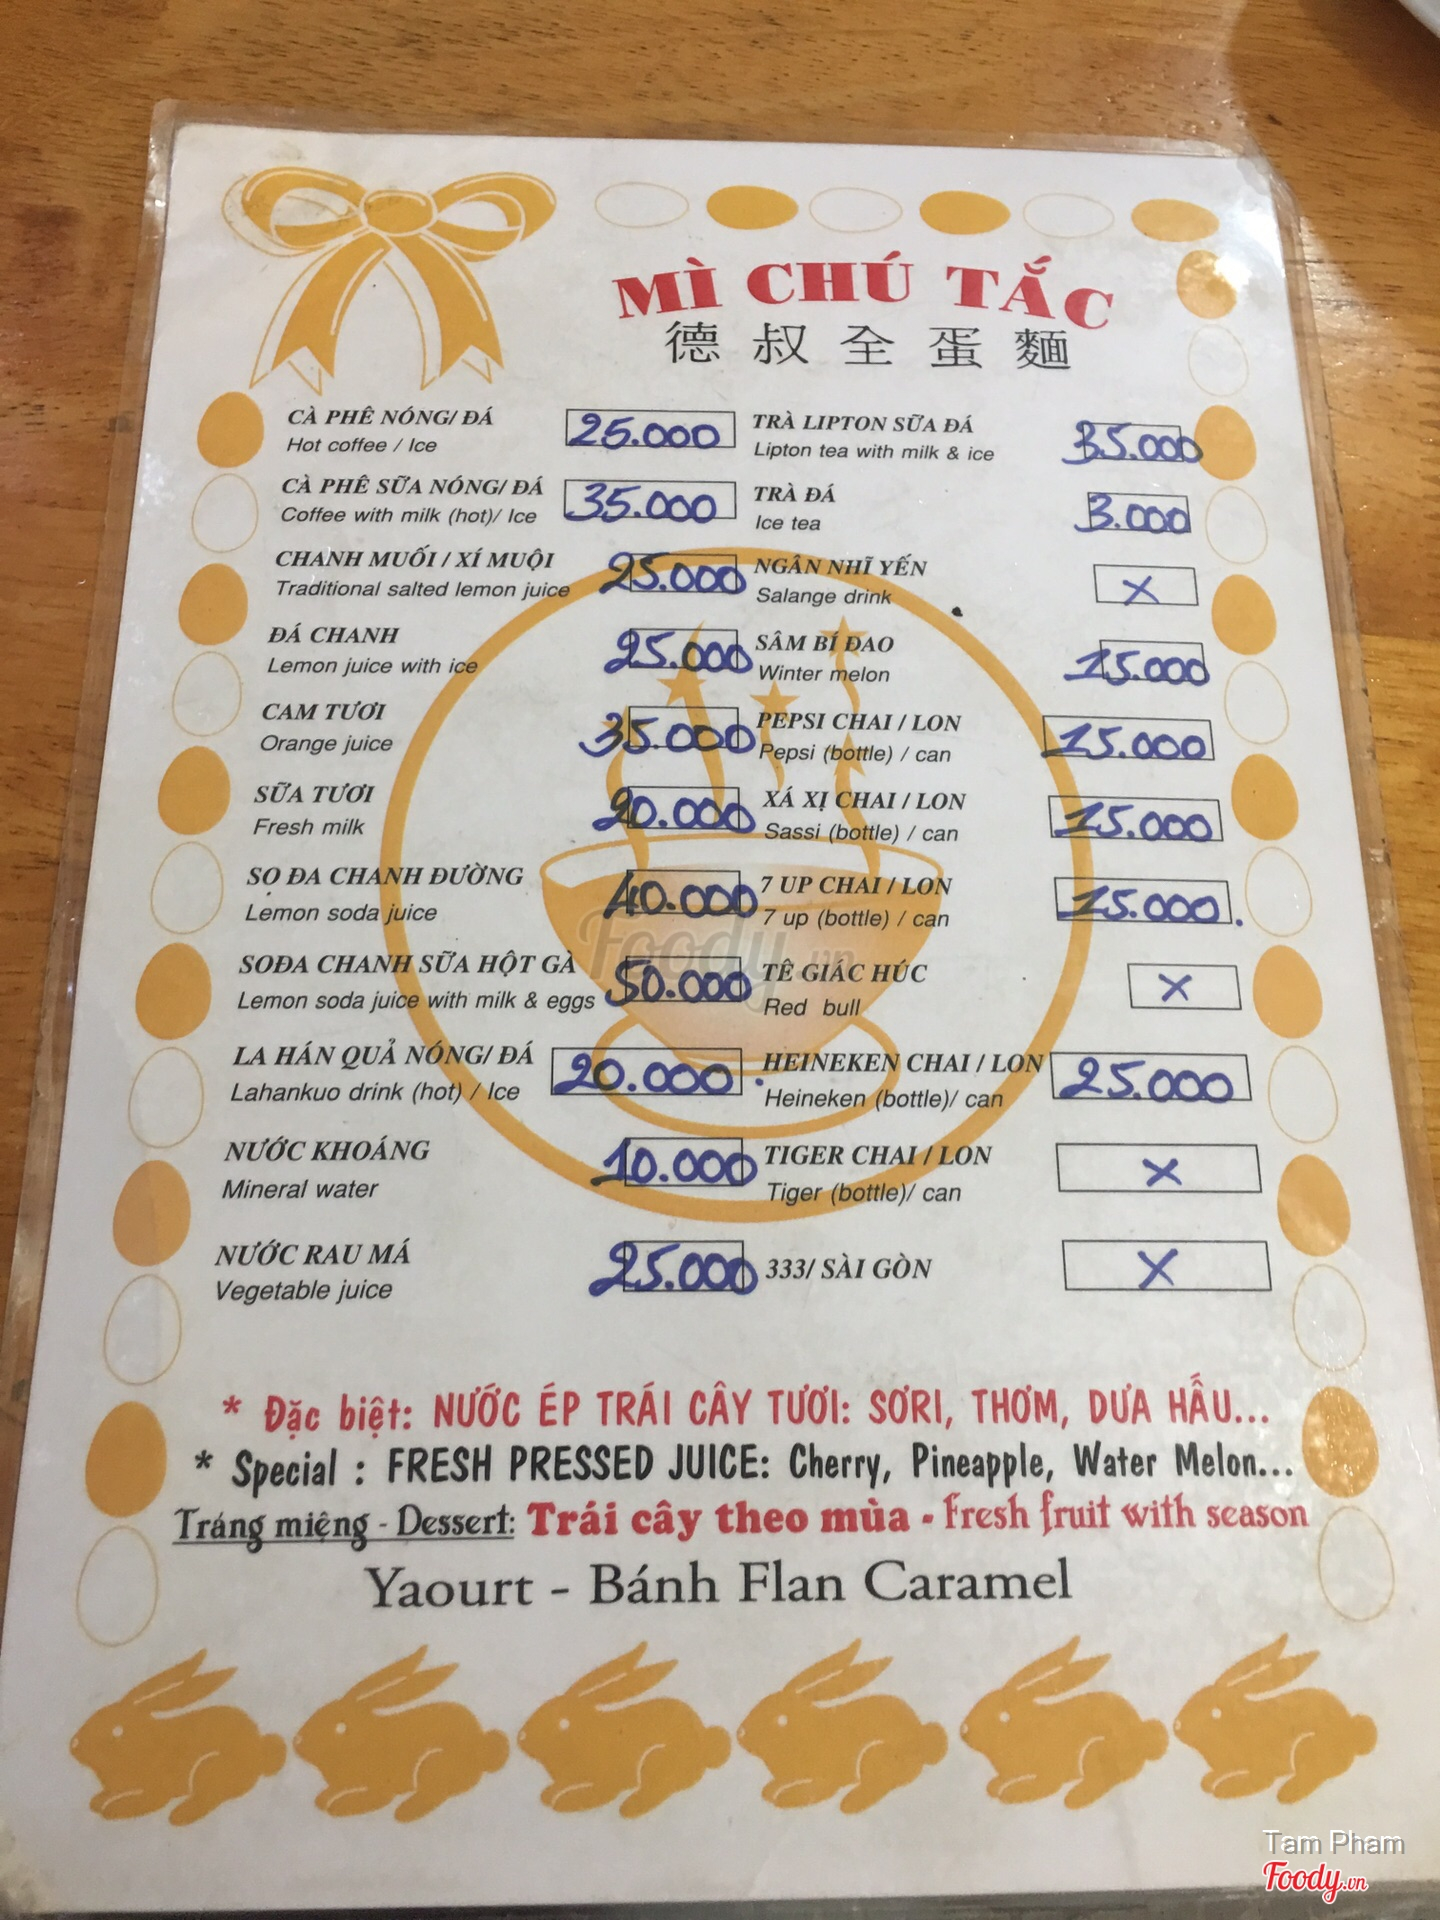 MÌ CHÚ TẮC
德叔全蛋麵
CÀ PHÊ NÓNG/ ĐÁ 25.000
Hot coffee / Ice
CÀ PHÊ SỮA NÓNG/ ĐÁ 35.000
Coffee with milk (hot)/ Ice
CHANH MUỐI / XÍ MUỘI 25.000
Traditional salted lemon juice
ĐÁ CHANH 25.000
Lemon juice with ice
CAM TƯƠI 35.000
Orange juice
SỮA TƯƠI 20.000
Fresh milk
SỌ ĐA CHANH ĐƯỜNG 40.000
Lemon soda juice
SOĐA CHANH SỮA HỘT GÀ 50.000
Lemon soda juice with milk & eggs
LA HÁN QUẢ NÓNG/ ĐÁ 20.000
Lahankuo drink (hot) / Ice
NƯỚC KHOÁNG 10.000
Mineral water
NƯỚC RAU MÁ 25.000
Vegetable juice
TRÀ LIPTON SỮA ĐÁ 35.000
Lipton tea with milk & ice
TRÀ ĐÁ 3.000
Ice tea
NGÂN NHĨ YẾN X
Salange drink
SÂM BÍ ĐAO 15.000
Winter melon
PEPSI CHAI / LON 15.000
Pepsi (bottle) / can
XÁ XỊ CHAI / LON 15.000
Sassi (bottle) / can
7 UP CHAI / LON 15.000.
7 up (bottle) / can
TÊ GIÁC HÚC X
Red bull
HEINEKEN CHAI / LON 25.000
Heineken (bottle)/ can
TIGER CHAI / LON X
Tiger (bottle)/ can
333/ SÀI GÒN X
* Đặc biệt: NƯỚC ÉP TRÁI CÂY TƯƠI: SƠRI, THƠM, DƯA HẤU...
* Special : FRESH PRESSED JUICE: Cherry, Pineapple, Water Melon...
Tráng miệng - Dessert: Trái cây theo mùa - Fresh fruit with season
Yaourt - Bánh Flan Caramel
Foody.vn
Tam Pham
Foody.vn